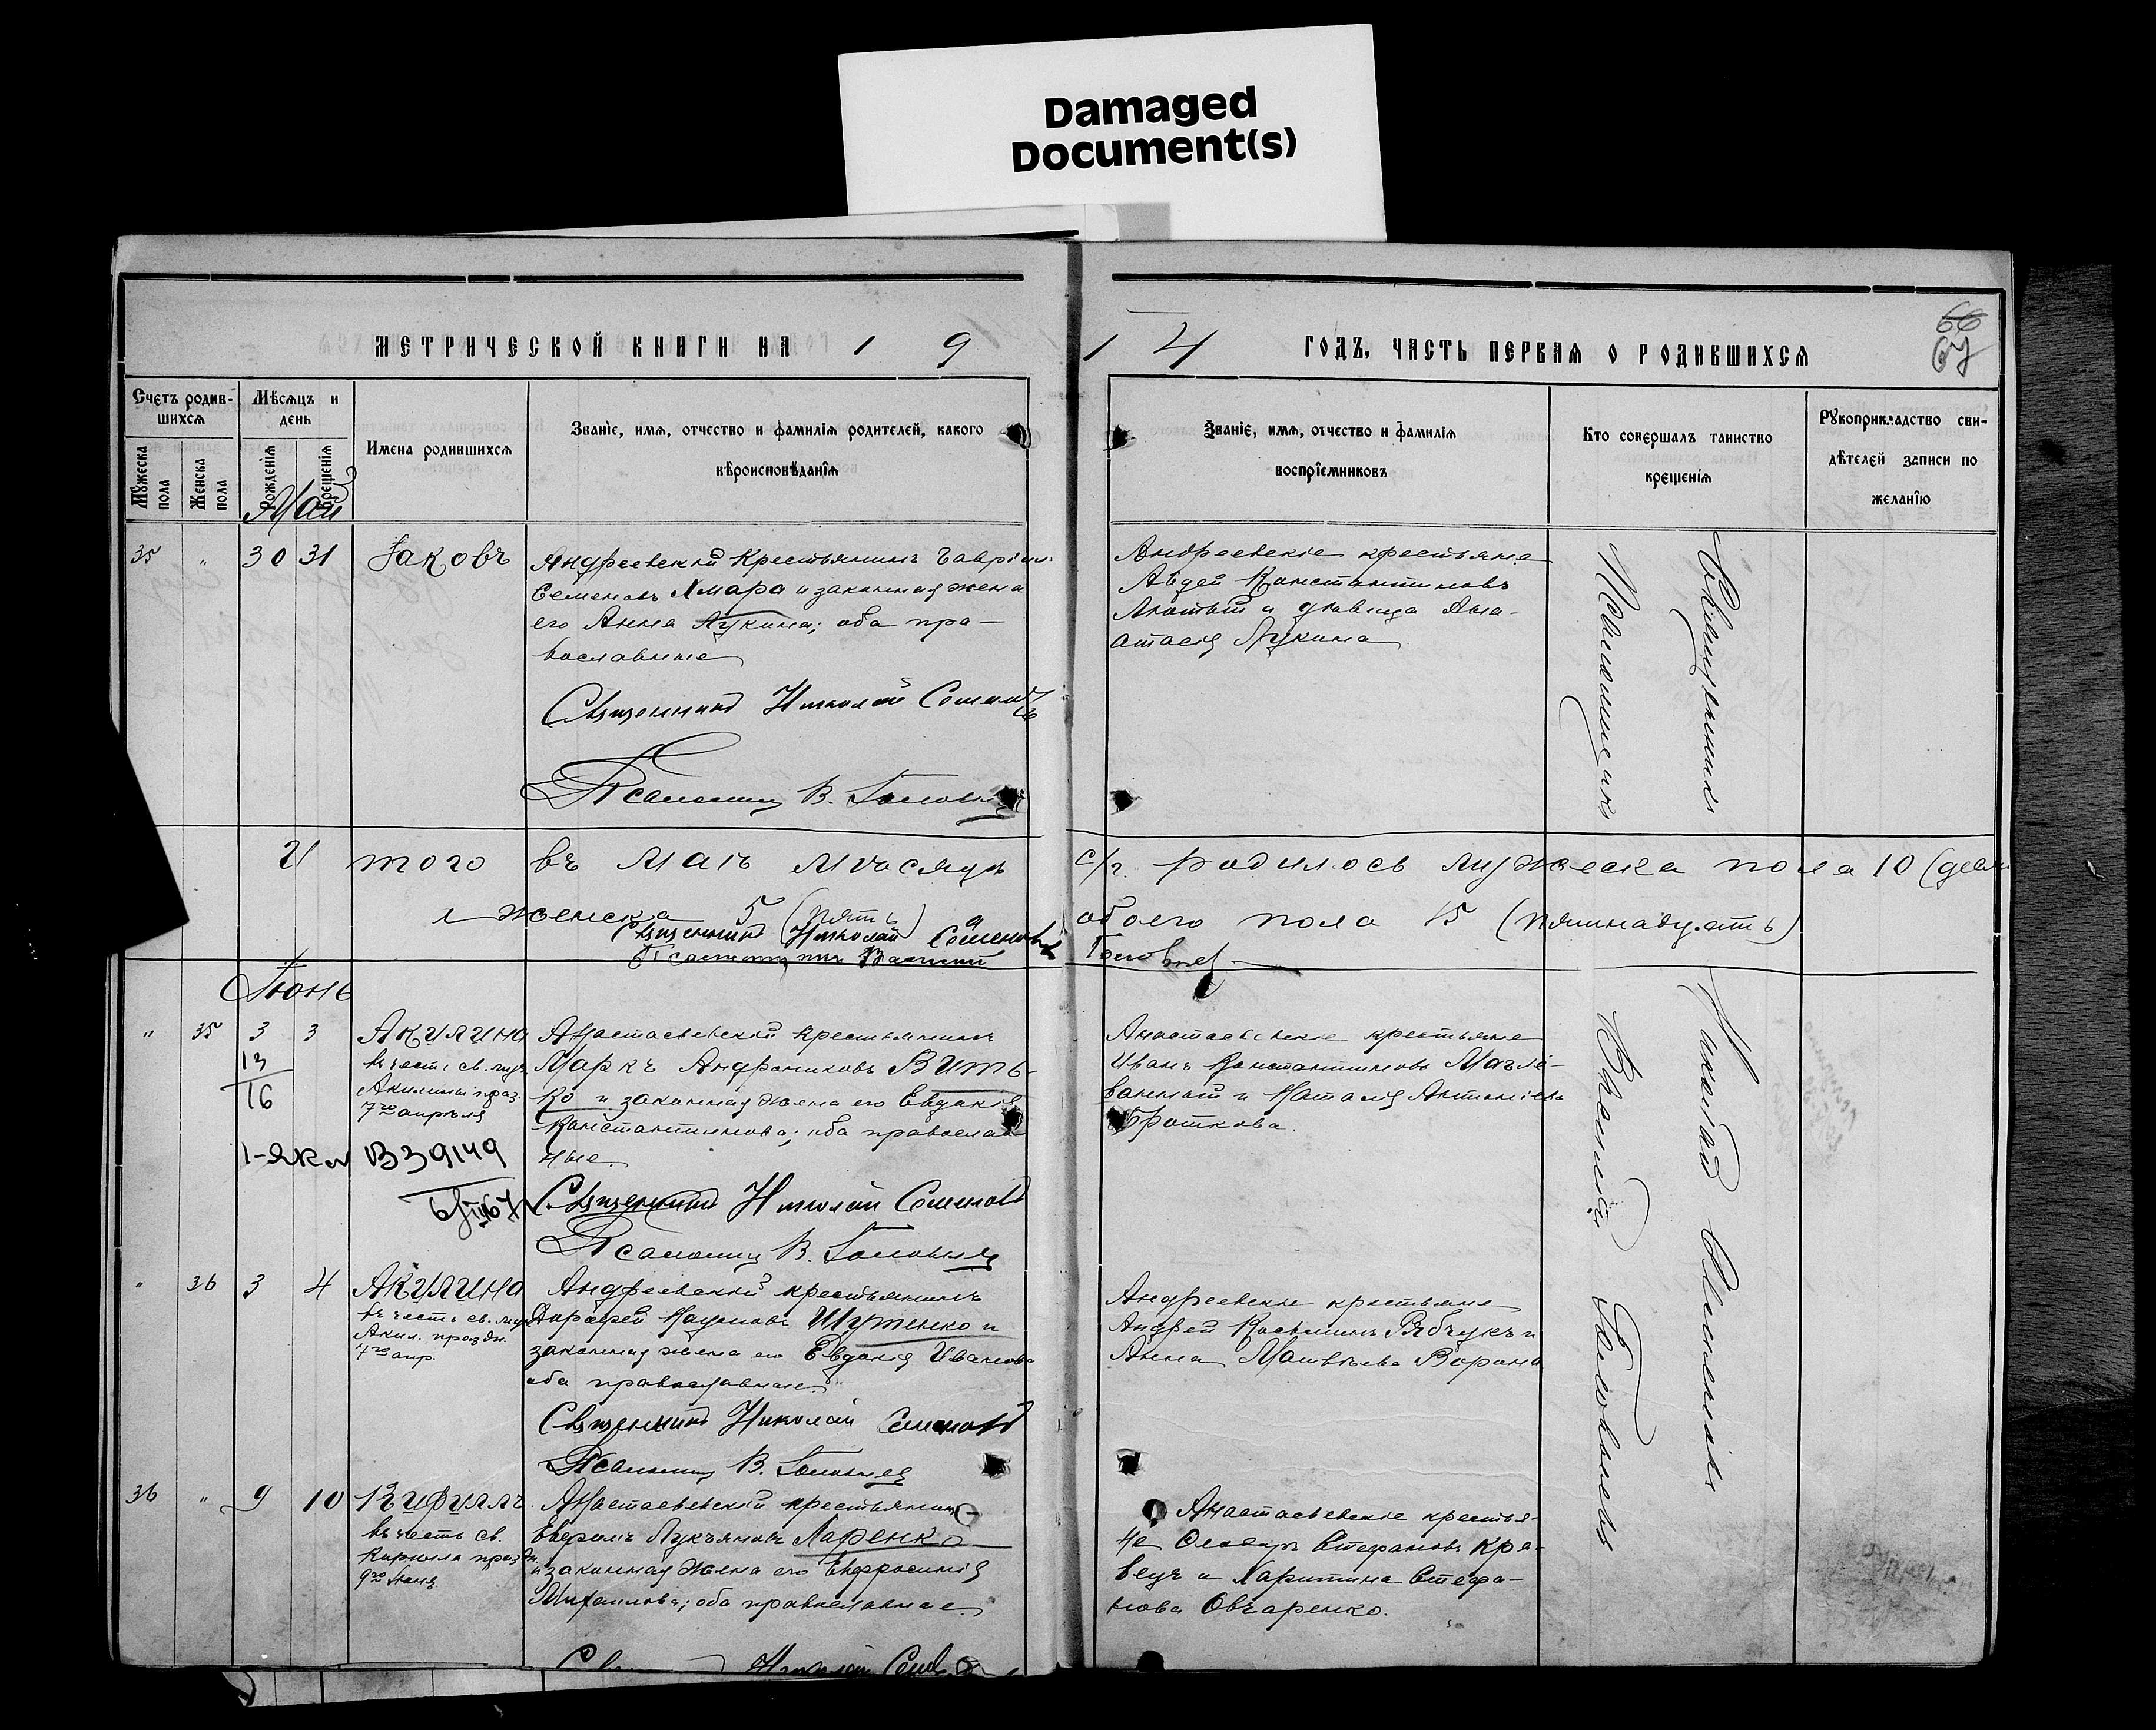 Damaged
Document(s)
МЕТРИЧЕСКОЙ КНИГИ НА 19
14 ГОДЪ, ЧАСТЬ ПЕРВАЯ О РОДИВШИХСЯ
66
67
Счетъ родив-
шихся
Мѣсяцъ и
день
Мужеска
пола
Женска
пола
Рожденія
Крещенія
Имена родившихся
Званіе, имя, отчество и фамилія родителей, какого
вѣроисповѣданія
Званіе, имя, отчество и фамилія
воспріемниковъ
Кто совершалъ таинство
крещенія
Рукоприкладство сви-
дѣтелей записи по
желанію
Май
35 " 30 31 Іаковъ
Андреевскій крестьянинъ Гавріилъ
Семеновъ Хмара и законная жена
его Анна Лукина; оба пра-
вославные
Священникъ Николай Семеновъ
Псаломщ В. Головнев
Андреевскіе крестьяне
Авдей Константиновъ
Лютый и дѣвица Ана-
стасія Лукина
Священникъ
Псаломщикъ
Итого въ маѣ мѣсяцѣ с/г. родилось мужеска пола 10
и женска 5 (пять) обоего пола 15 (пятнадцать)
Священникъ Николай Семеновъ
Псаломщикъ Василий
Іюнь
" 35 3 3 Акилина
въ честь св. муч.
Акилины празд.
7го апрѣля
13
16
1-ЯКЛ ВЗ9149
Анастасьевскій крестьянинъ
Маркъ Андрониковъ Вить-
ко и законная жена его Евдокія
Константинова; оба православ-
ные.
Священникъ Николай Семеновъ
Псаломщ В. Головнев
Анастасьевскіе крестьяне
Иванъ Константиновъ
и Наталія Антоніева
Броткова.
Николай Семеновъ
Василій Головневъ
" 36 3 4 Акилина
въ честь св. муч.
Акил. праздн.
7го апр.
Андреевскій крестьянинъ
Дорофей Наумовъ Шутенко и
законная жена его Евдокія Иванова
оба православные.
Священникъ Николай Семеновъ
Псаломщ В. Головнев
Андреевскіе крестьяне
Андрей Косьминъ Рябчукъ и
Анна Матвѣева Ворона
36 " 9 10 Кириллъ
въ честь св.
Кирилла праздн.
9го іюня
Анастасьевскій крестьянинъ
Лукьяновъ Ларенко
и законная жена его Евфросинія
Михаилова; оба православные.
Анастасьевскіе крестья-
не Стефановъ Кра-
вецъ и Харитина Стефа-
нова Овчаренко.